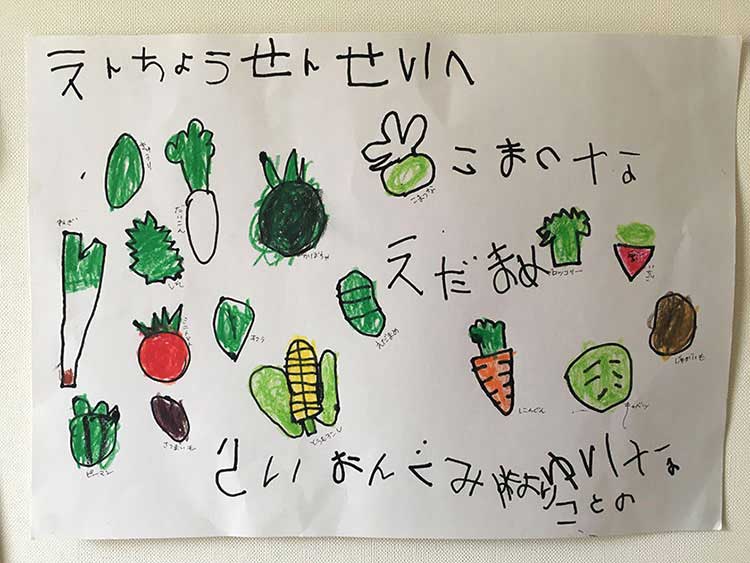 えんちょうせんせいへ
きゅうり
だいこん
かぼちゃ
こまつな
こまつな
ねぎ
しそ
えだまめ
ブロッコリー
いちご
ミニトマト
オクラ
えだまめ
にんじん
キャベツ
じゃがいも
ピーマン
さつまいも
とうもろこし
ぐみ
より
ことの